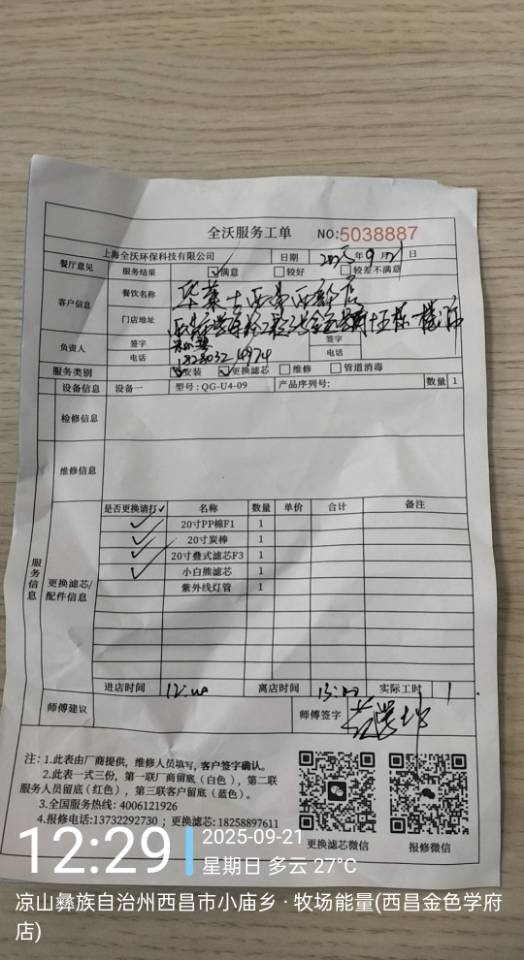 全沃服务工单 NO:5038887
上海全沃环保科技有限公司 日期 2025年9月21日
餐厅意见 服务结果 ☑满意 □较好 □较差不满意
客户信息 餐饮名称 华莱士西昌西 店
门店地址
负责人 签字 签字
电话 电话
服务类别 ☑安装 ☑更换滤芯 □维修 □管道消毒
设备信息 设备一 型号:QG-U4-09 产品序列号: 数量 1
检修信息
维修信息
服务信息
更换滤芯/配件信息
是否更换请打✓ 名称 数量 单价 合计 备注
✓ 20寸PP棉F1 1
✓ 20寸炭棒 1
✓ 20寸叠式滤芯F3 1
✓ 小白熊滤芯 1
紫外线灯管 1
进店时间 12:00 离店时间 13:00 实际工时 1
师傅建议 师傅签字
注:1.此表由厂商提供,维修人员填写,客户签字确认。
2.此表一式三份,第一联厂商留底(白色),第二联
服务人员留底(红色),第三联客户留底(蓝色)。
3.全国服务热线:4006121926
4.报修电话:13732292730;更换滤芯:18258897611
更换滤芯微信 报修微信
12:29 2025-09-21
星期日 多云 27°C
凉山彝族自治州西昌市小庙乡·牧场能量(西昌金色学府
店)